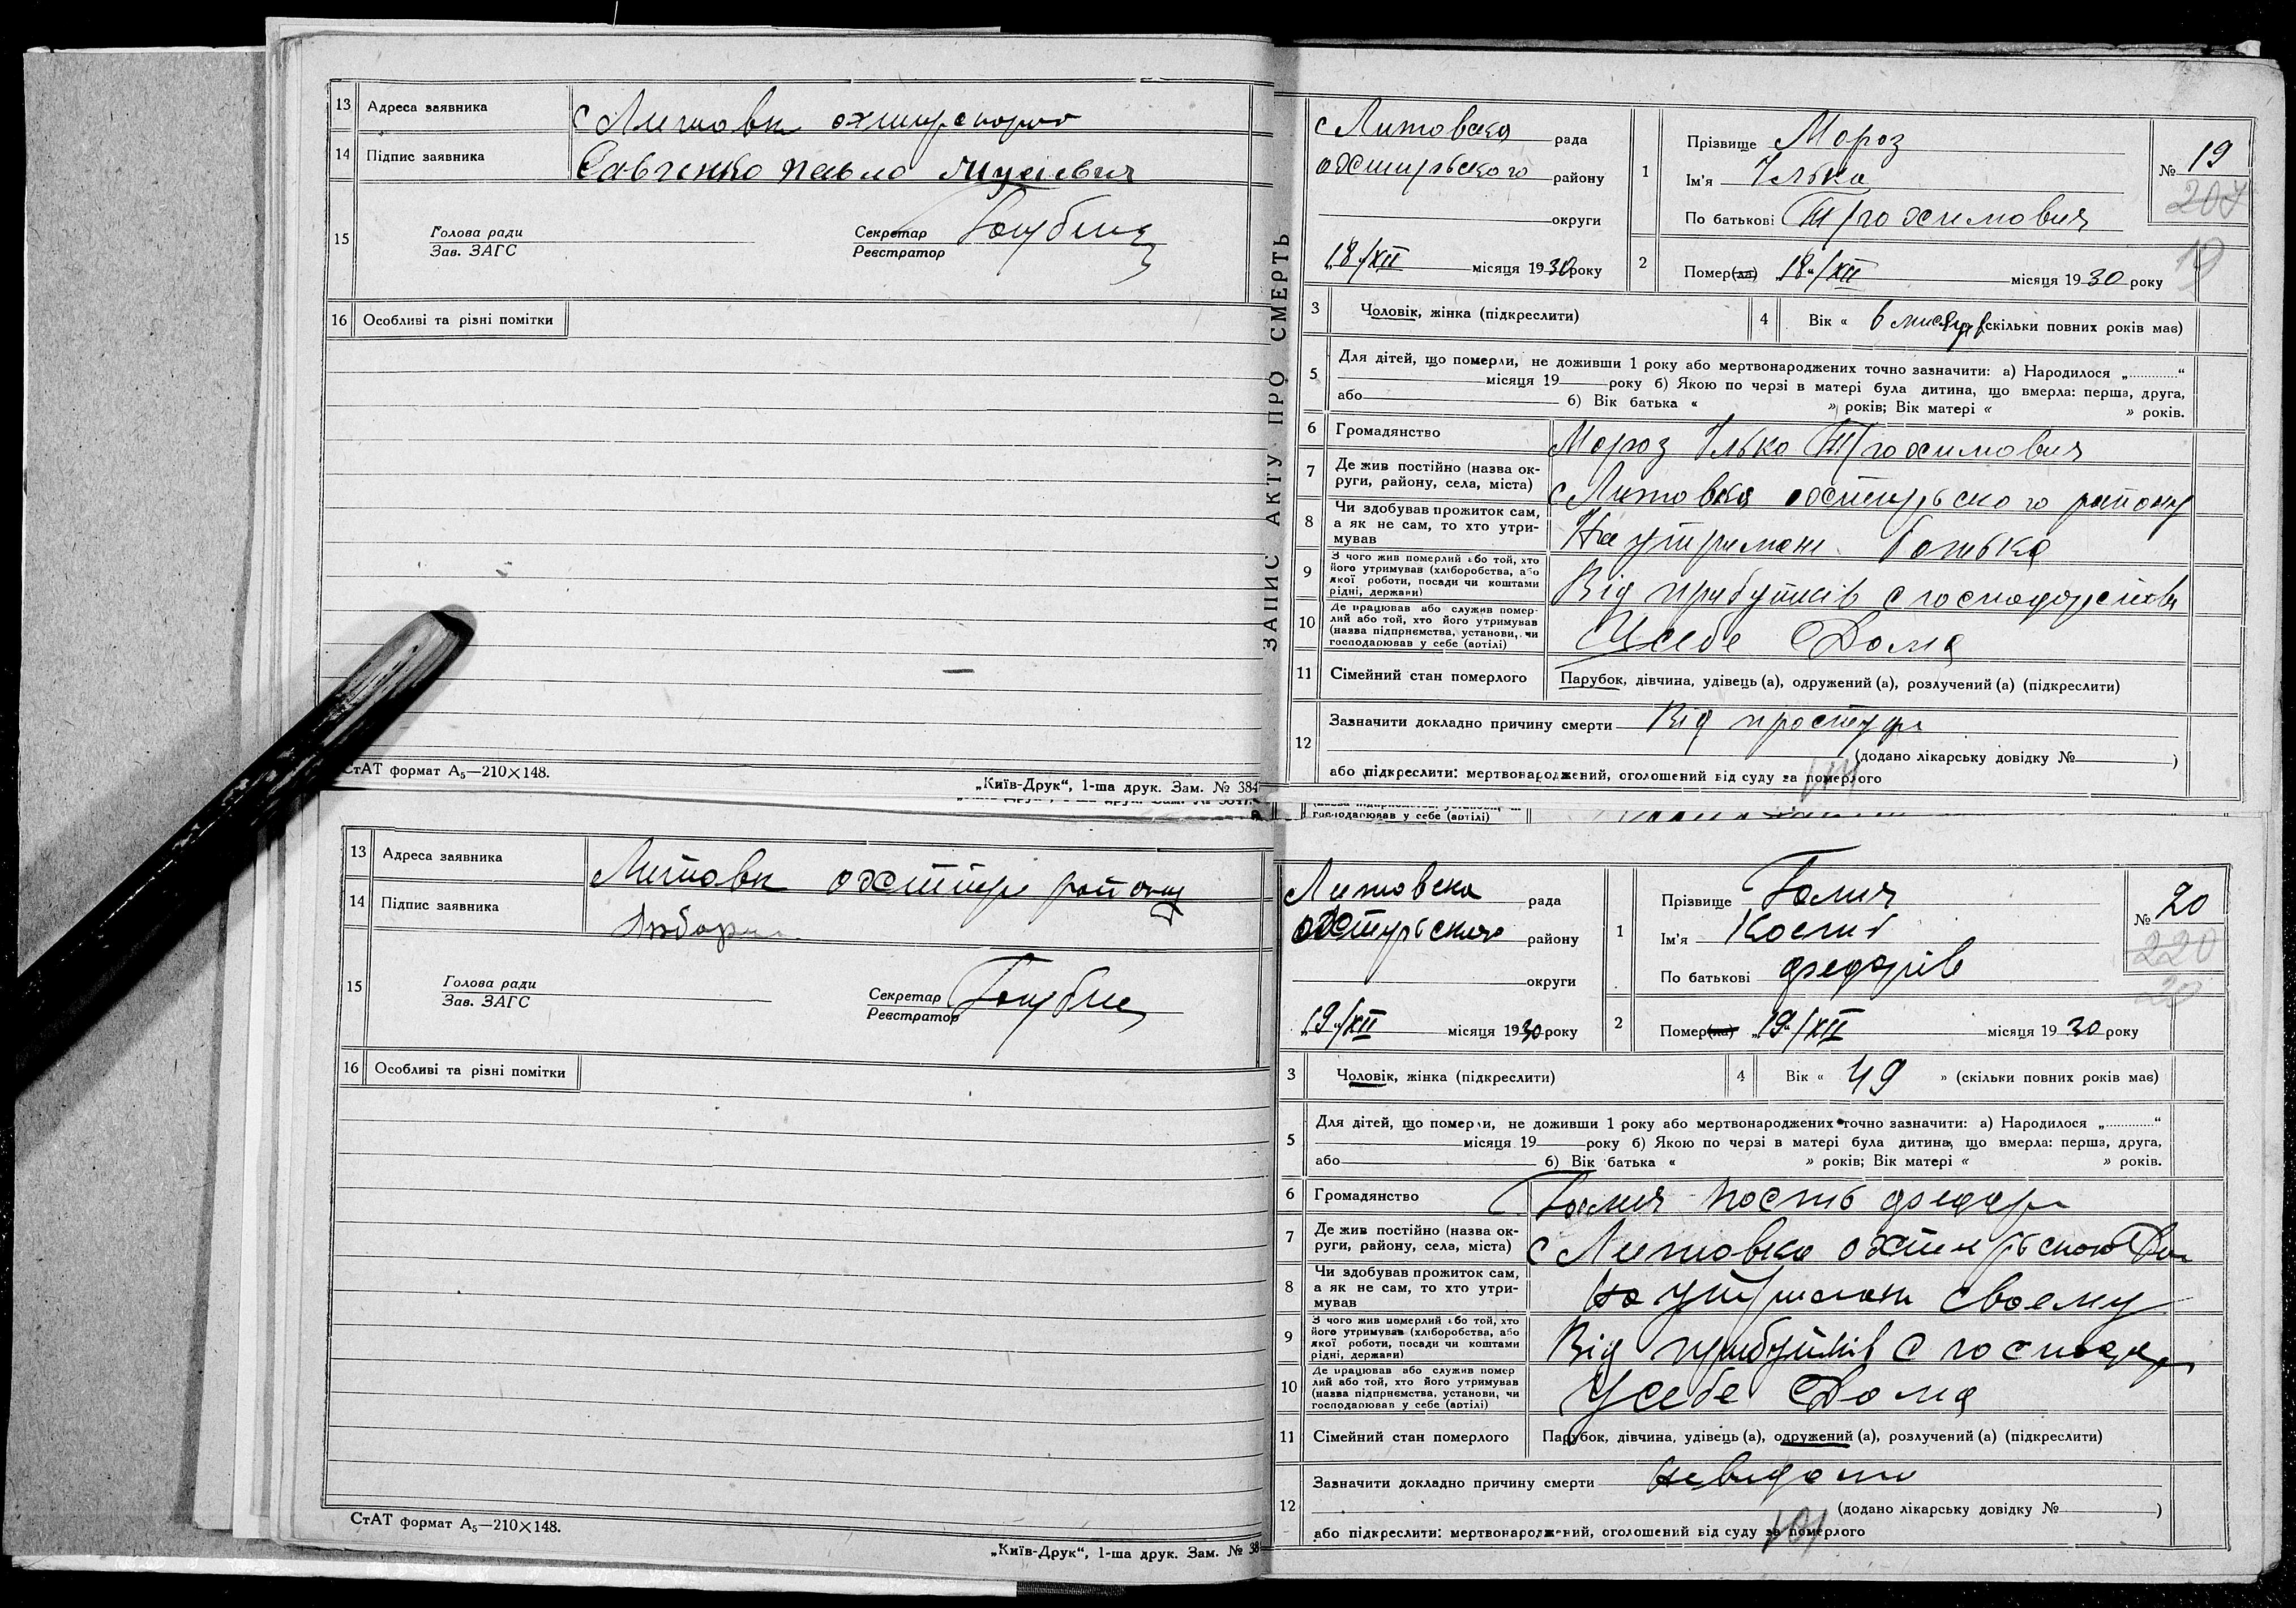 13 Адреса заявника с Литовк охтирского
14 Підпис заявника Савченко Павло Мусіевич
15 Голова ради
Зав. ЗАГС
Секретар
Реєстратор
16 Особливі та різні помітки
СтАТ формат А₅—210×148.
„Київ-Друк“, 1-ша друк. Зам. № 384
ЗАПИС АКТУ ПРО СМЕРТЬ
с Литовска рада
охтирьского району
округи
„18“/XII місяця 1930 року
1 Прізвище Мороз
Ім'я Ілько
По батькові Трохимович
№ 19
207
19
2 Помер(ла) „18“/XII місяця 1930 року
3 Чоловік, жінка (підкреслити)
4 Вік « 6 місяців (скільки повних років має)
5 Для дітей, що померли, не доживши 1 року або мертвонароджених точно зазначити: а) Народилося „............“
місяця 19 року б) Якою по черзі в матері була дитина, що вмерла: перша, друга,
або б) Вік батька « » років; Вік матері « » років.
6 Громадянство Мороз Ілько Трохимович
7 Де жив постійно (назва ок-
руги, району, села, міста) с Литовка охтирьского району
8 Чи здобував прожиток сам,
а як не сам, то хто утри-
мував На утримані батька
9 З чого жив померлий або той, хто
його утримував (хліборобства, або
якої роботи, посади чи коштами
рідні, держави) Від прибутків с господарства
10 Де працював або служив помер-
лий або той, хто його утримував
(назва підприємства, установи, чи
господарював у себе (артілі) У себе Дома
11 Сімейний стан померлого Парубок, дівчина, удівець (а), одружений (а), розлучений (а) (підкреслити)
12 Зазначити докладно причину смерти Від простуди
(додано лікарську довідку № )
або підкреслити: мертвонароджений, оголошений від суду за померлого
13 Адреса заявника Литовк охтирс району
14 Підпис заявника
15 Голова ради
Зав. ЗАГС
Секретар
Реєстратор
16 Особливі та різні помітки
СтАТ формат А₅—210×148.
„Київ-Друк“, 1-ша друк. Зам. № 38
господарював у себе (артілі)
Литовска рада
охтирьского району
округи
„19“/XII місяця 1930 року
1 Прізвище Галич
Ім'я Кость
По батькові Федорів
№ 20
220
20
2 Помер(ла) „19“/XII місяця 1930 року
3 Чоловік, жінка (підкреслити)
4 Вік « 49 » (скільки повних років має)
5 Для дітей, що померли, не доживши 1 року або мертвонароджених точно зазначити: а) Народилося „............“
місяця 19 року б) Якою по черзі в матері була дитина, що вмерла: перша, друга,
або б) Вік батька « » років; Вік матері « » років.
6 Громадянство Галич Кость Федор
7 Де жив постійно (назва ок-
руги, району, села, міста) с Литовка охтирьского
8 Чи здобував прожиток сам,
а як не сам, то хто утри-
мував На утримані своему
9 З чого жив померлий або той, хто
його утримував (хліборобства, або
якої роботи, посади чи коштами
рідні, держави) Від прибутків с господар
10 Де працював або служив помер
лий або той, хто його утримував
(назва підприємства, установи, чи
господарював у себе (артілі) У себе Дома
11 Сімейний стан померлого Парубок, дівчина, удівець (а), одружений (а), розлучений (а) (підкреслити)
12 Зазначити докладно причину смерти невидомо
(додано лікарську довідку № )
або підкреслити: мертвонароджений, оголошений від суду за померлого